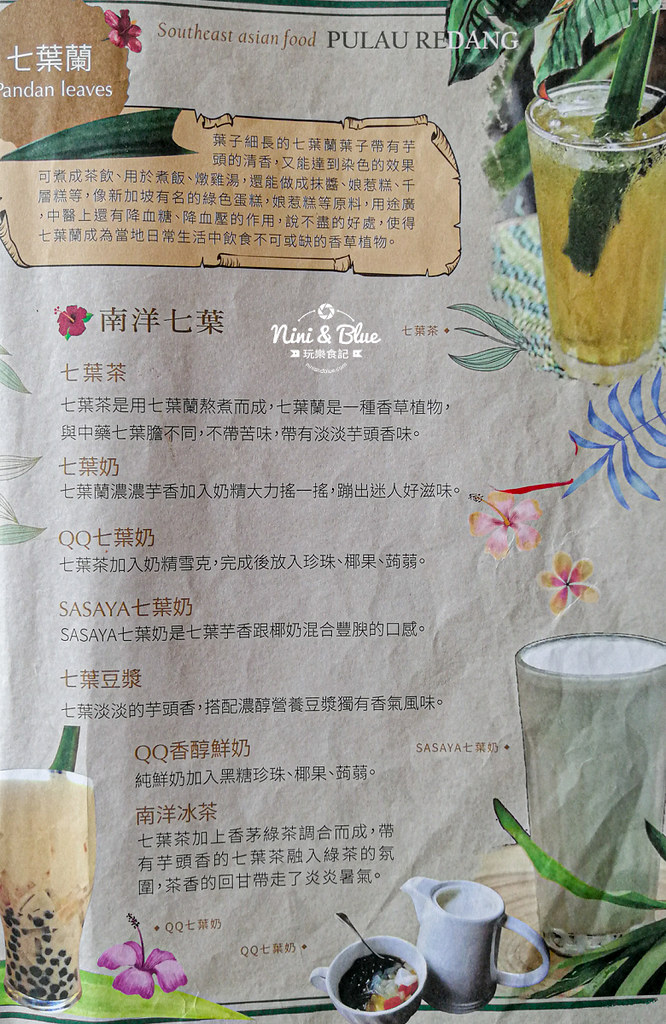 Southeast asian food PULAU REDANG
七葉蘭
Pandan leaves
葉子細長的七葉蘭葉子帶有芋
頭的清香，又能達到染色的效果
可煮成茶飲、用於煮飯、燉雞湯，還能做成抹醬、娘惹糕、千
層糕等，像新加坡有名的綠色蛋糕，娘惹糕等原料，用途廣
，中醫上還有降血糖、降血壓的作用，說不盡的好處，使得
七葉蘭成為當地日常生活中飲食不可或缺的香草植物。
南洋七葉
Nini & Blue
玩樂食記
niniandblue.com
七葉茶
七葉茶
七葉茶是用七葉蘭熬煮而成，七葉蘭是一種香草植物，
與中藥七葉膽不同，不帶苦味，帶有淡淡芋頭香味。
七葉奶
七葉蘭濃濃芋香加入奶精大力搖一搖，蹦出迷人好滋味。
QQ七葉奶
七葉茶加入奶精雪克，完成後放入珍珠、椰果、蒟蒻。
SASAYA七葉奶
SASAYA七葉奶是七葉芋香跟椰奶混合豐腴的口感。
七葉豆漿
七葉淡淡的芋頭香，搭配濃醇營養豆漿獨有香氣風味。
QQ香醇鮮奶
純鮮奶加入黑糖珍珠、椰果、蒟蒻。
SASAYA七葉奶
南洋冰茶
七葉茶加上香茅綠茶調合而成，帶
有芋頭香的七葉茶融入綠茶的氛
圍，茶香的回甘帶走了炎炎暑氣。
QQ七葉奶
QQ七葉奶